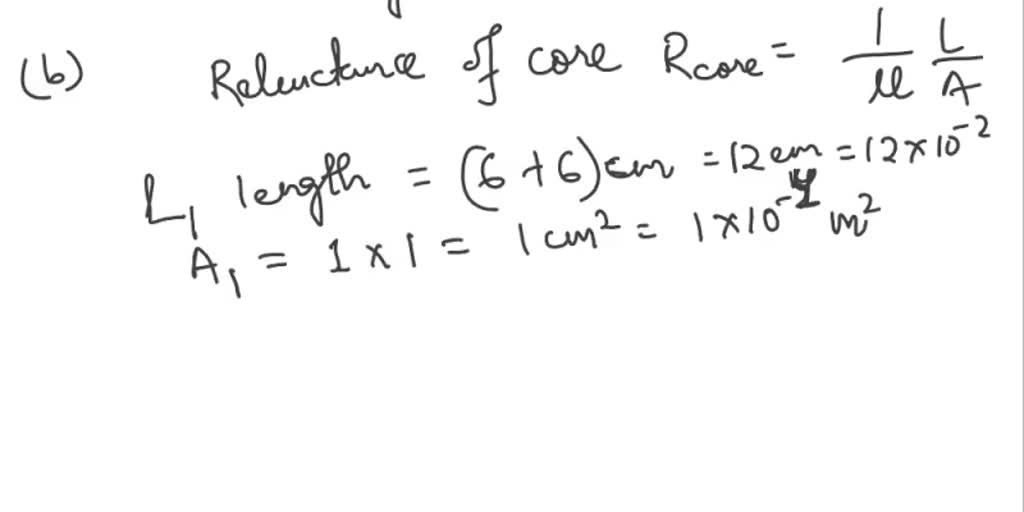 (b) Reluctance of core Rcore = 1/μ L/A
L₁ length = (6+6)cm = 12cm = 12×10⁻²
A₁ = 1×1 = 1cm² = 1×10⁻⁴ m²